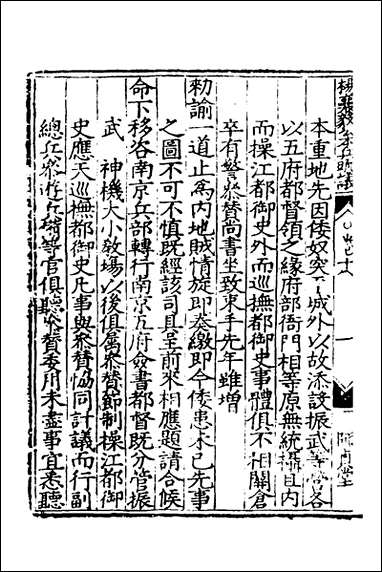 本重地先因倭奴突至城外以故添設振武等營各
以五府都督領之緣府部衙門相等原無統攝且內
而操江都御史外而巡撫都御史事體俱不相關倉
卒有警叅贊尚書坐致束手先年雖增
勑諭一道止爲內地賊情旋即奏繳即今倭患未已先事
之圖不可不慎既經該司具呈前來相應題請合候
命下移咨南京兵部轉行南京五府僉書都督既分管振
武 神機大小敎場以後俱屬叅贊節制操江都御
史應天巡撫都御史凡事與叅贊協同計議而行副
總兵叅遊兵備等官俱聽叅贊委用未盡事宜悉聽